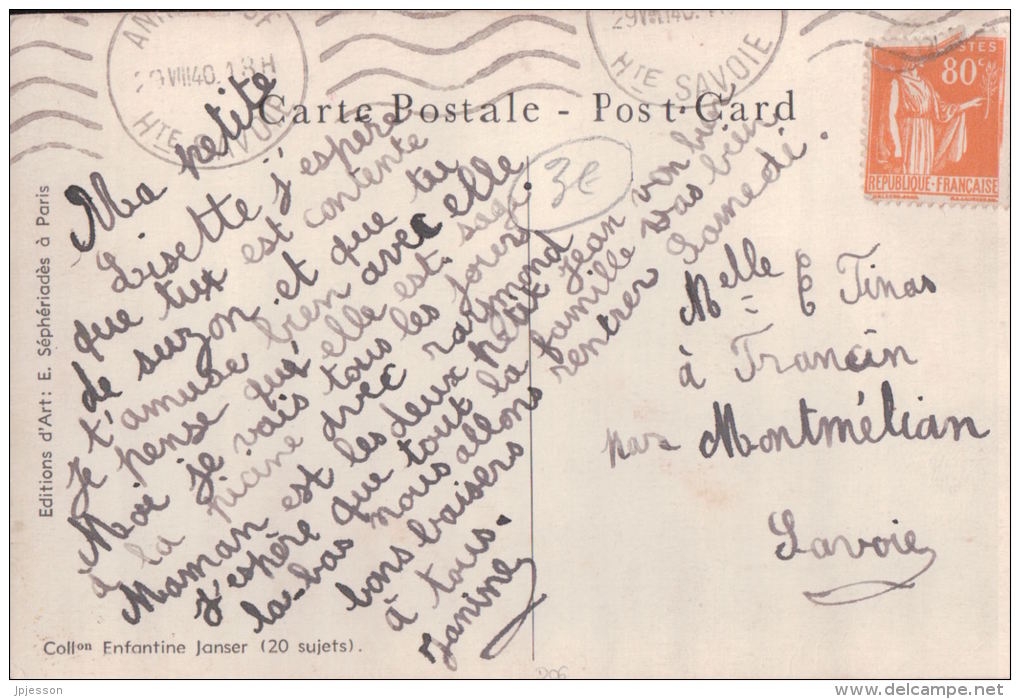 29 VIII 40. 18H
HTE SAVOIE
29 VIII 40.
HTE SAVOIE
POSTES
80c
RÉPUBLIQUE-FRANÇAISE
Carte Postale - Post-Card
3€
Ma petite
Lisette j'espère
que tux est contente
de suzon. et que tu
t'amuse bien avec elle
Je pense qu'elle est sage.
Moi je vais tous les jours
à la picine avec raimond
Maman est les deux petit Jean von bien
J'espère que tout la famille vas bien
la-bas nous allons rentrer Samedi.
bons baisers
à tous.
Janine
Melle E Tinas
à Francin
par Montmélian
Savoie
Editions d'Art: E. Séphériadès à Paris
Collon Enfantine Janser (20 sujets).
jpjesson
delcampe.net